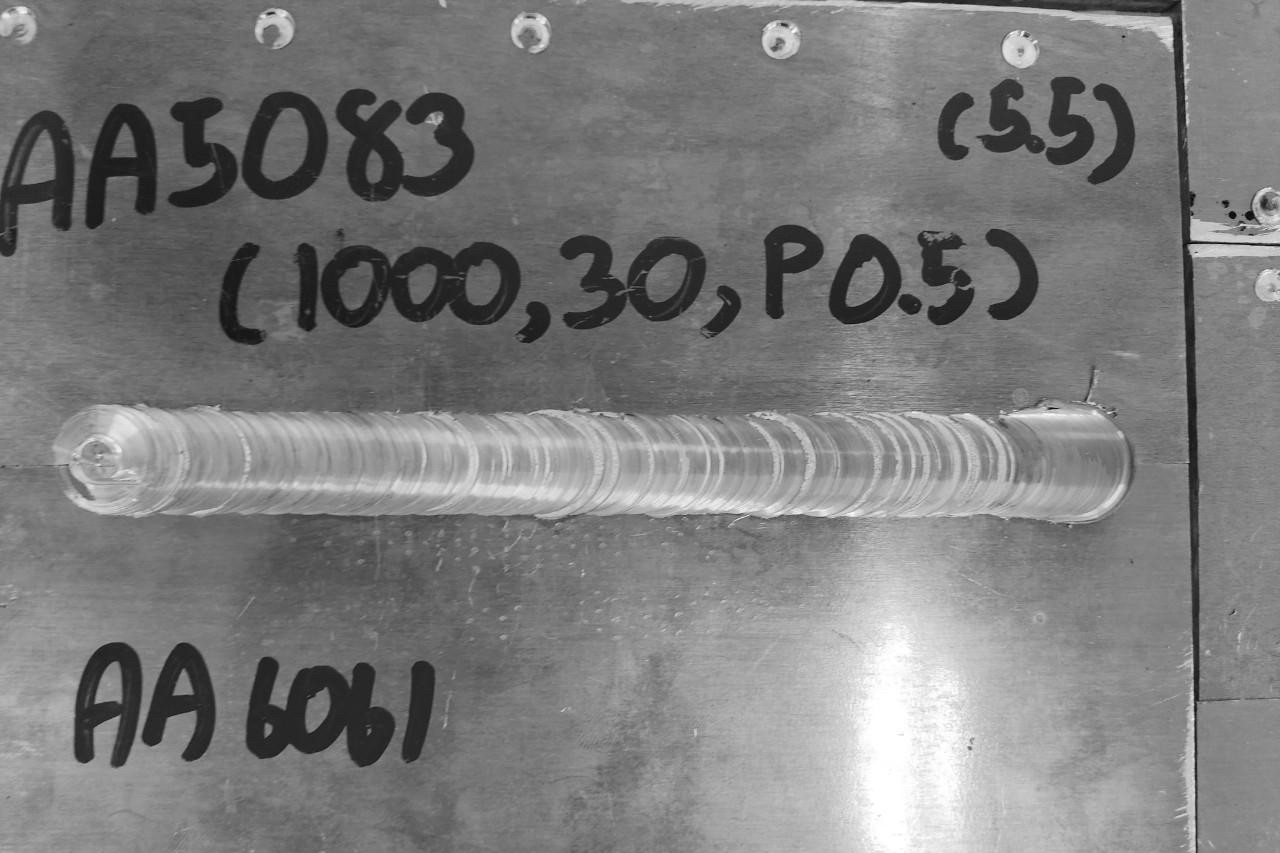 AA5083
(5.5)
(1000,30,P0.5)
AA6061